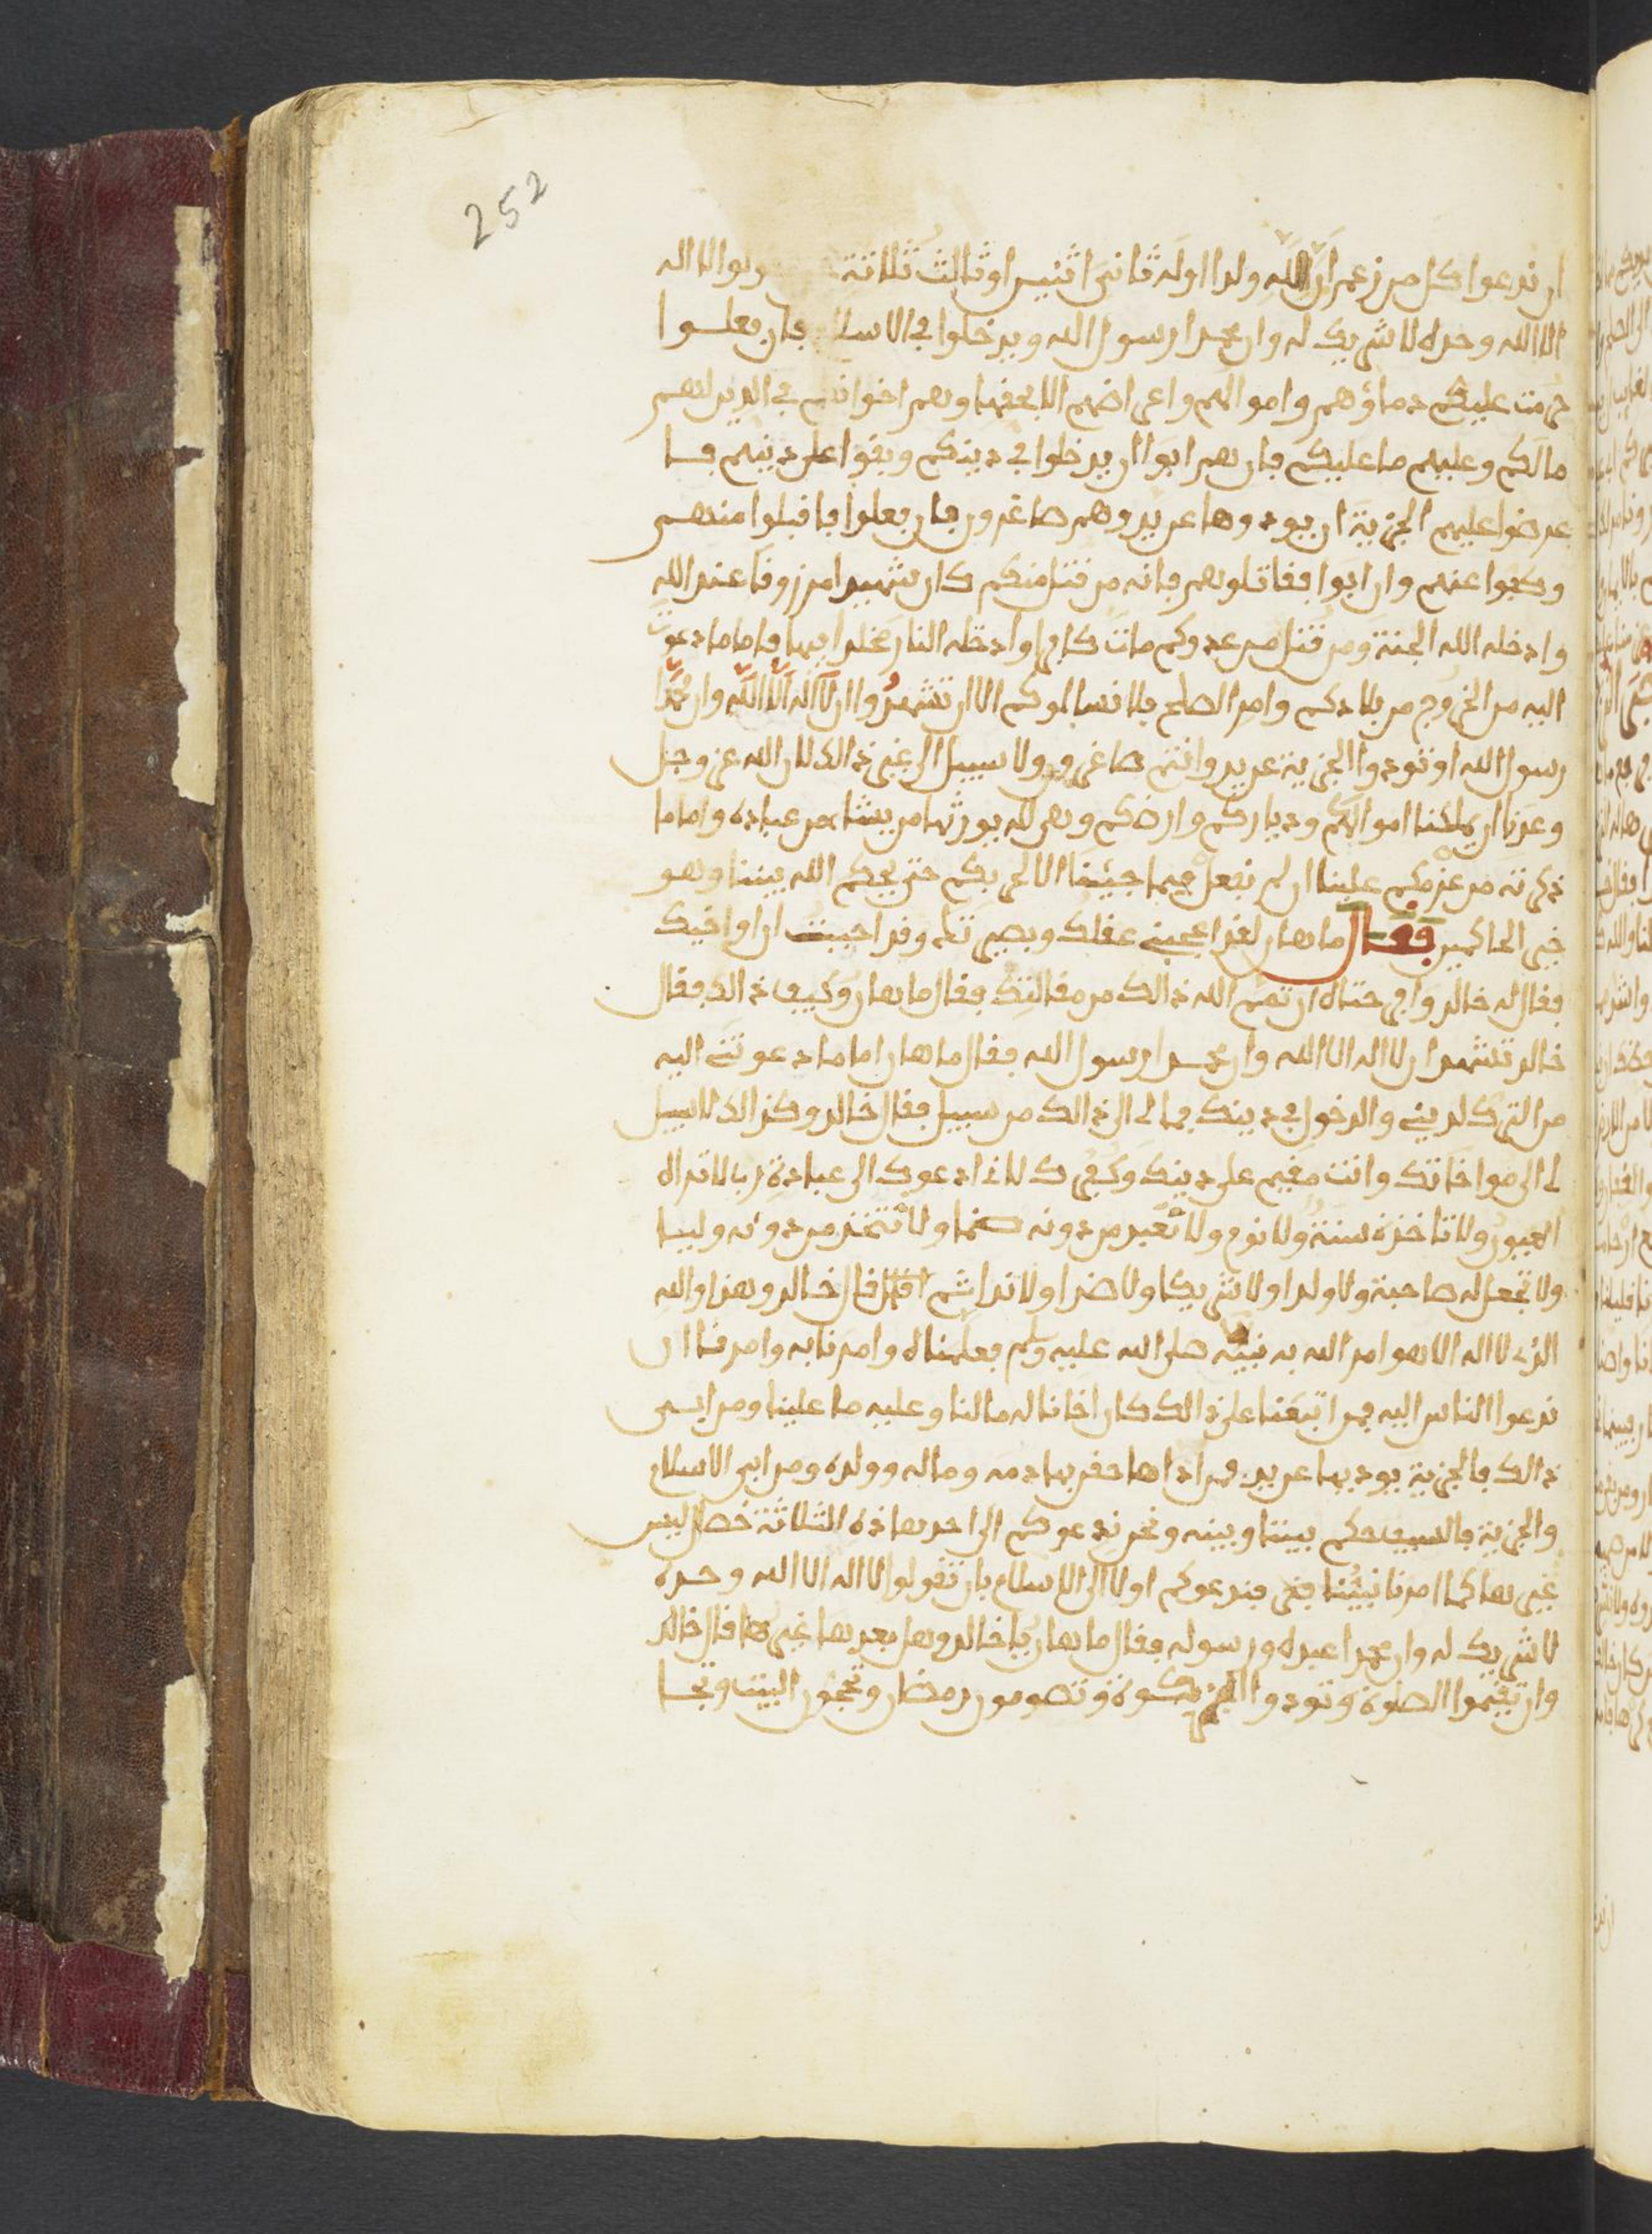 252
ان ندعوا كل من زعم ان لله ولدا اوله ثاني اثنين او ثالث ثلاثة الا اله
الا الله وحده لا شريك له وان محمدا رسول الله ويدخلوا في الاسلا فان فعلوا
حرمت عليكم دماؤهم واموالهم واعراضهم الا بحقها وهم اخوانكم في الدين لهم
ما لكم وعليهم ما عليكم فان هم ابوا ان يدخلوا في دينكم وبقوا على دينهم فا
عرضوا عليهم الجزية ان يودوها عن يد وهم صاغرون فان فعلوا فاقبلوا منهم
وكفوا عنهم وان ابوا فقاتلوهم فانه من قتل منكم كان شهيدا مرزوقا عند الله
وادخله الله الجنة ومن قتل من عدوكم مات كافرا وادخله النار مخلدا فيها فاما ما دعوت
اليه من الخروج من بلادكم وامر الصلح فلا نسالموكم الا ان تشهدوا ان لا اله الا الله وان محمدا
رسول الله او تودوا الجزية عن يد وانتم صاغرون ولا سبيل الى غير ذالك لان الله عز وجل
وعدنا ان يملكنا اموالكم ودياركم وارضكم وهي لله يورثها من يشاء من عباده واما ما
ذكرته من عزمكم علينا ان لم نفعل فيما جيئنا الا لحربكم حتى يحكم الله بيننا وهو
خير الحاكمين فقال ماهان لقد اعجبني عقلك وبصيرتك وقد احببت ان اواخيك
فقال له خالد وافرحتاه ان تمم الله ذالك من مقالتك فقال ماهان وكيف ذالك فقال
خالد تشهد ان لا اله الا الله وان محمدا رسول الله فقال ماهان اما ما دعوتني اليه
من الترك لديني والدخول في دينك فما لي الى ذالك من سبيل فقال خالد وكذالك لا سبيل
لي الى مواخاتك وانت مقيم على دينك وكفرك لاني ادعوك الى عبادة رب لا تراه
العيون ولا تاخذه سنة ولا نوم ولا تعبد من دونه صنما ولا تتخذ من دونه وليا
ولا تجعل له صاحبة ولا ولدا ولا شريكا ولا ضدا ولا ندا ثم قال خالد وهذا والله
الذي لا اله الا هو امر الله به نبيه صلى الله عليه وسلم فعلمناه وامرنا به وامرنا ان
ندعوا الناس اليه فمن اتبعنا على ذالك كان اخانا له ما لنا وعليه ما علينا ومن ابى
ذالك فالجزية يوديها عن يد فمن اداها حقن بها دمه وماله وولده ومن ابى الاسلام
والجزية فالسيف حكم بيننا وبينه ونحن ندعوكم الى احد هاذه الثلاثة خصال ليس
غيرها كما امرنا نبينا فنحن ندعوكم اولا الى الاسلام بان تقولوا لا اله الا الله وحده
لا شريك له وان محمدا عبده ورسوله فقال ماهان يا خالد وهل بعدها غيرها قال خالد
وان تقيموا الصلوة وتودوا الزكوة وتصومون رمضان وتحجون البيت وتجا